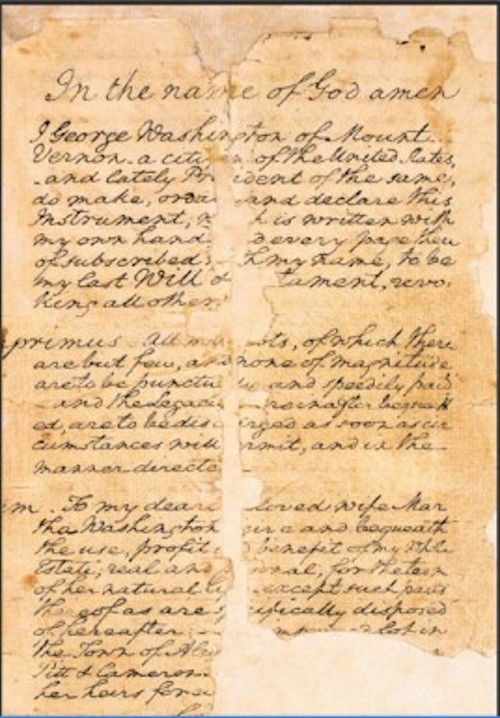 In the name of God amen
I George Washington of Mount
Vernon a citizen of the United States,
and lately Pr ident of the same,
do make, orda and declare this
Instrument, w h is written with
my own hand d every page there
of subscribed h my name, to be
my last Will & tament, revo
king all others
primus all my bts, of which there
are but few, and none of magnitude,
are to be punctu ly and speedily paid
and the Legaci reinafter bequeath
ed, are to be dis rged as soon as cir
cumstances will rmit, and in the
manner directe
m To my dear loved wife Mar
tha Washington give and bequeath
the use, profit benefit of my whole
Estate, real and nal, for the term
of her natural li except such parts
thereof as are sp cifically disposed
of hereafter lot in
the Town of Alex
Pitt & Cameron
her heirs forev